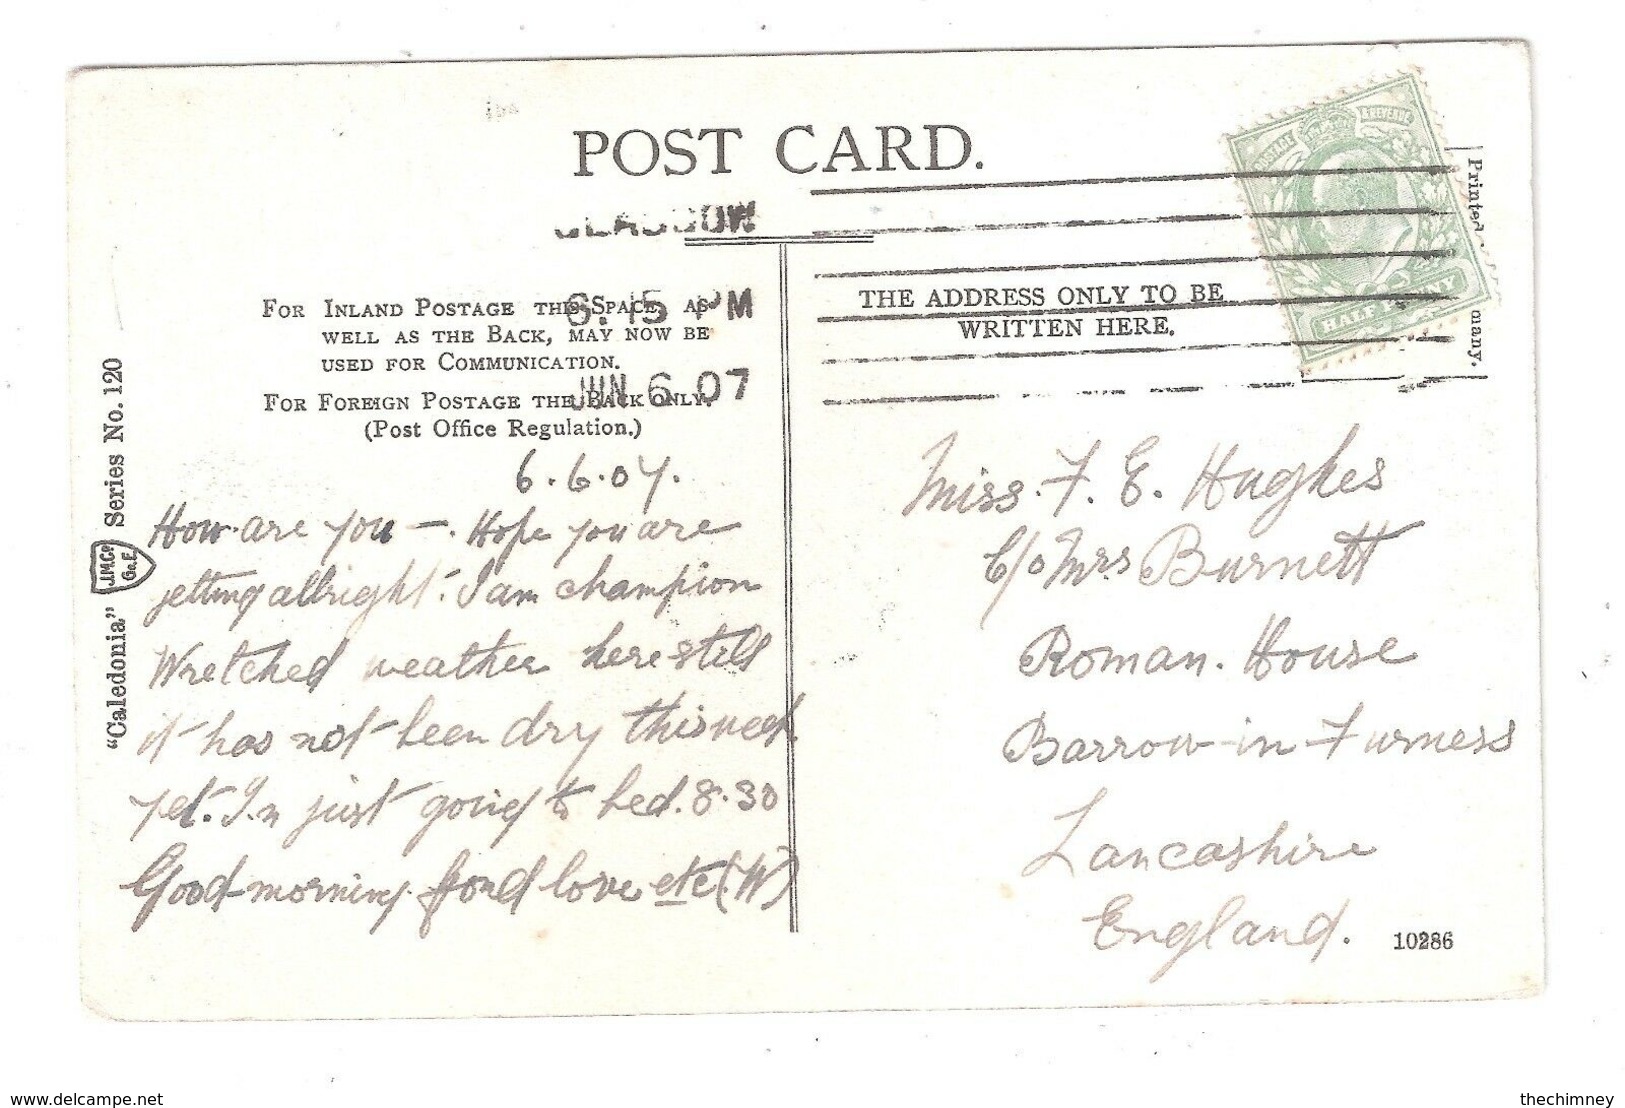 POST CARD.
GLASGOW
6.15 PM
JUN 6 07
FOR INLAND POSTAGE THIS SPACE, AS
WELL AS THE BACK, MAY NOW BE
USED FOR COMMUNICATION.
FOR FOREIGN POSTAGE THE BACK ONLY.
(Post Office Regulation.)
THE ADDRESS ONLY TO BE
WRITTEN HERE.
POSTAGE & REVENUE
HALF PENNY
Printed many.
"Caledonia" J.M.Co Ga.E. Series No. 120
6.6.07.
How are you —. Hope you are
getting allright. I am champion
Wretched weather here still
it has not been dry this week
yet. I'm just going to bed. 8.30
Good morning. fond love etc (W)
Miss. F. E. Hughes
C/o Mrs Burnett
Roman. House
Barrow-in-Furness
Lancashire
England.
10286
delcampe.net
thechimney